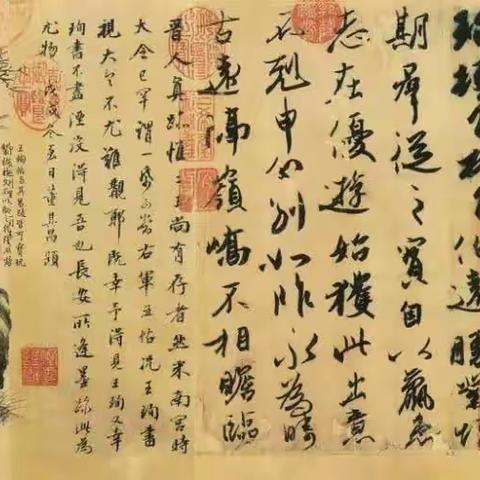 珣頓首頓首伯遠勝業情
期群從之寶自以羸患
志在優遊始獲此出意
不剋申分別如昨永為疇
古遠隔嶺嶠不相瞻臨
晉人真跡惟二王尚有存者然米南宮時
大令已罕謂一紙可當右軍五帖況王珣書
視大令不尤難覯耶既幸予得見王珣又幸
珣書不盡湮沒得見吾也長安所逢墨跡此為
尤物戊戌冬至日董其昌題